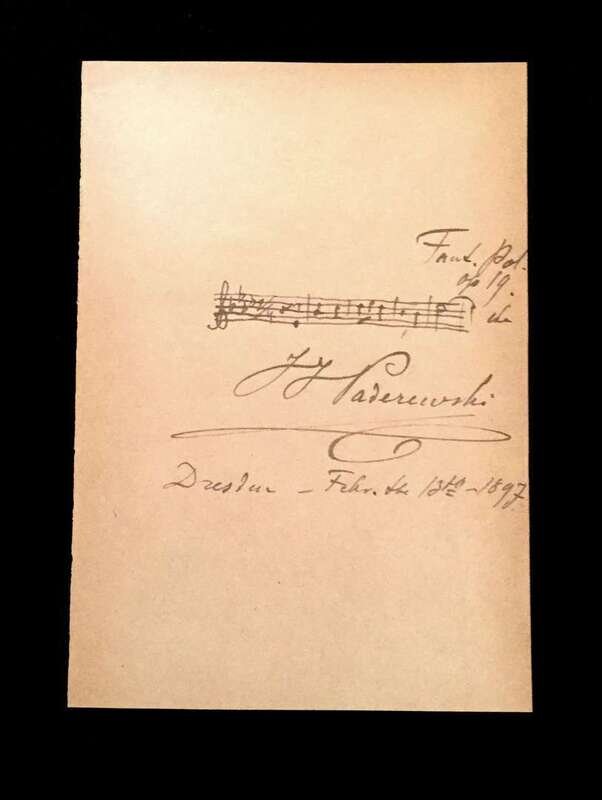 Fant. Pol.
op 19.
etc
J J Paderewski
Dresden – Febr. the 13th – 1897